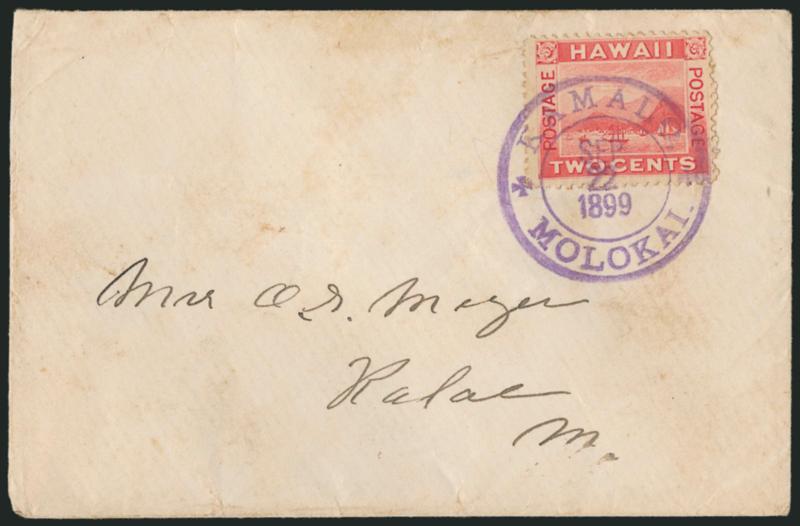 HAWAII
POSTAGE
POSTAGE
TWO CENTS
KAMALO
SEP
22
1899
MOLOKAI.
Mrs O.S. Meyer
Kalae
M.